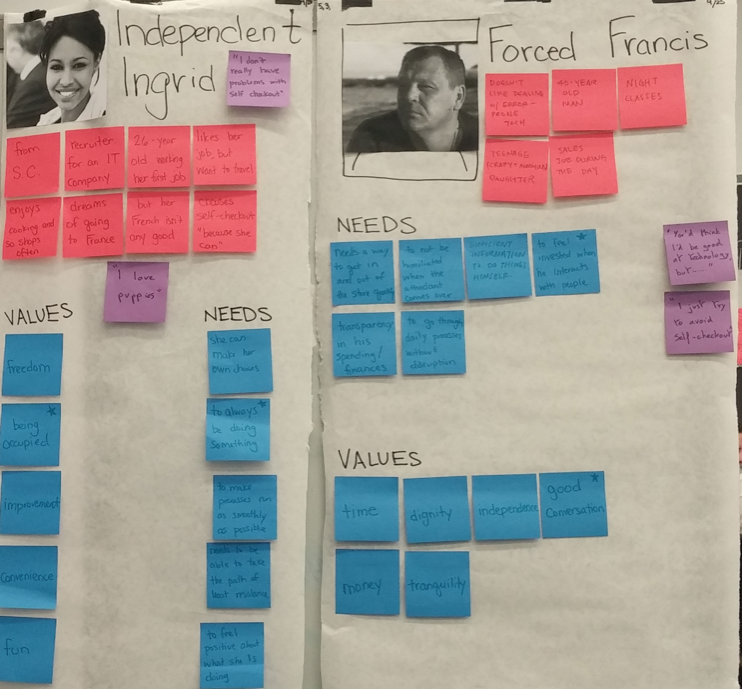 Independent
Ingrid
"I don't
really have
problems with
self checkout"
from
S.C.
recruiter
for an IT
company
26-year
old working
her first job
likes her
job, but
want to travel
enjoys
cooking and
so shops
often
dreams
of going
to France
but her
French isn't
any good
chooses
self-checkout
"because she
can"
"I love
puppies"
VALUES
freedom
being *
occupied
improvement
convenience
fun
NEEDS
she can
make her
own choices
to always *
be doing
something
to make
processes run
as smoothly
as possible
needs to be
able to take
the path of
least resistance
to feel
positive about
what she is
doing
5,3,
4/25
Forced Francis
DOESN'T
LIKE DEALING
W/ ERROR-
PRONE
TECH
40-YEAR
OLD
MAN
NIGHT
CLASSES
TEENAGE
DAUGHTER
SALES
JOB DURING
THE DAY
NEEDS
needs a way
to get in
and out of
the store
to not be
humiliated
when the
attendant
comes over
SUFFICIENT
INFORMATION
TO DO THINGS
HIMSELF
to feel *
invested when
he interacts
with people
transparency
in his
spending/
finances
to go through
daily processes
without
disruption
"You'd think
I'd be good
at technology,
but...."
"I just try
to avoid
self-checkout"
VALUES
time
dignity
independence
good *
conversation
money
tranquility